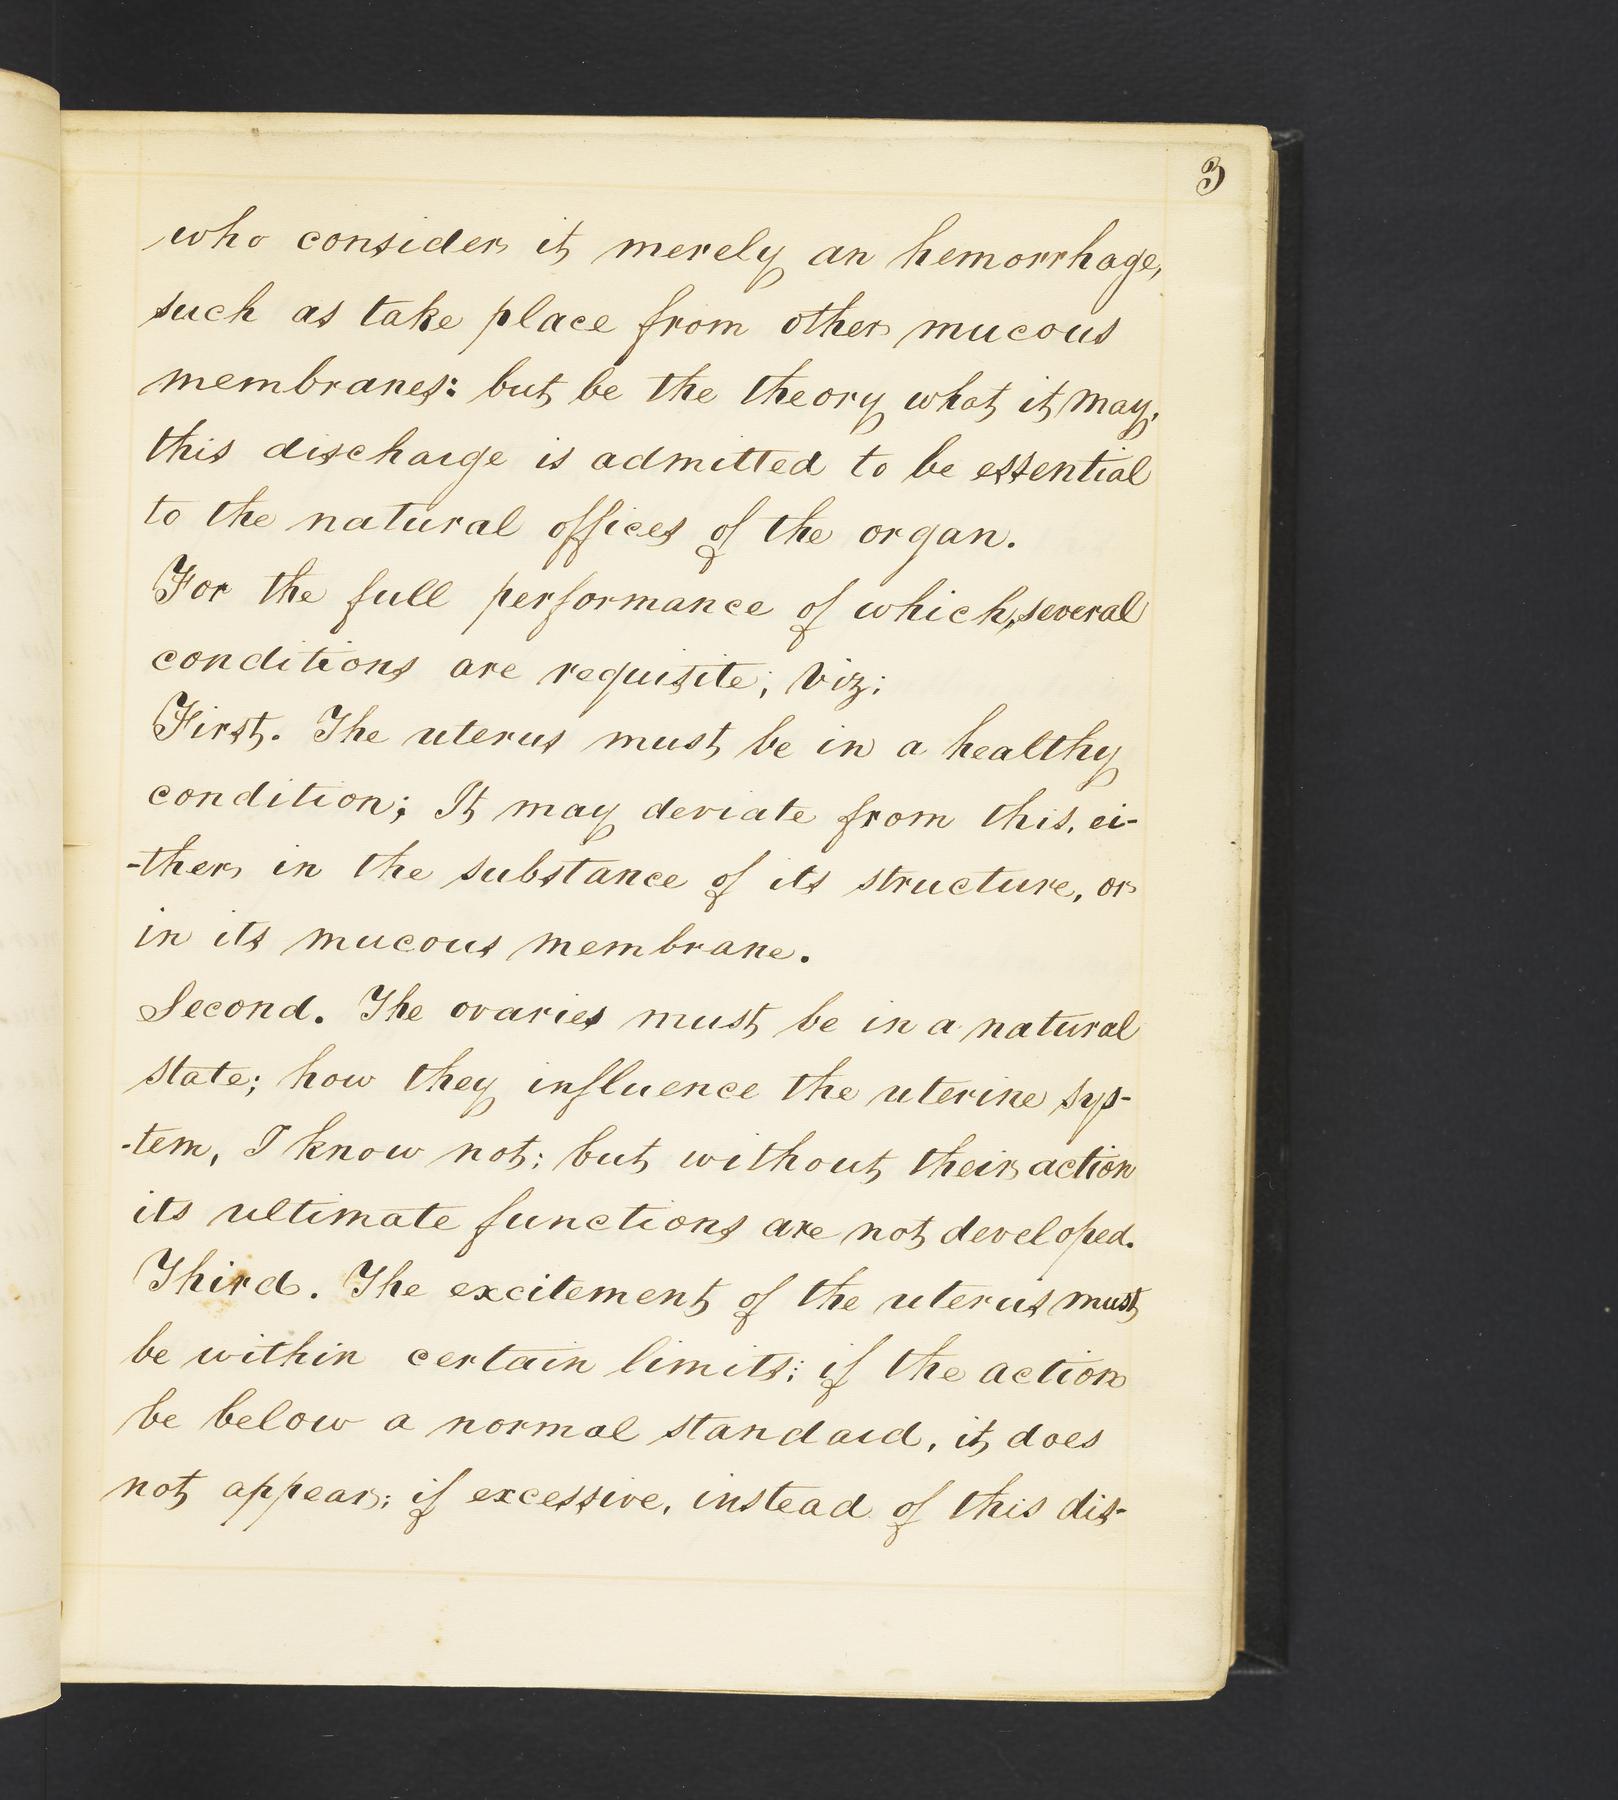 3
who consider it merely an hemorrhage,
such as take place from other mucous
membranes: but be the theory what it may,
this discharge is admitted to be essential
to the natural offices of the organ.
For the full performance of which, several
conditions are requisite; Viz;
First. The uterus must be in a healthy
condition; It may deviate from this, ei-
-ther in the substance of its structure, or
in its mucous membrane.
Second. The ovaries must be in a natural
state; how they influence the uterine sys-
-tem, I know not; but without their action
its ultimate functions are not developed.
Third. The excitement of the uterus must
be within certain limits; if the action
be below a normal standard, it does
not appear; if excessive, instead of this dis-